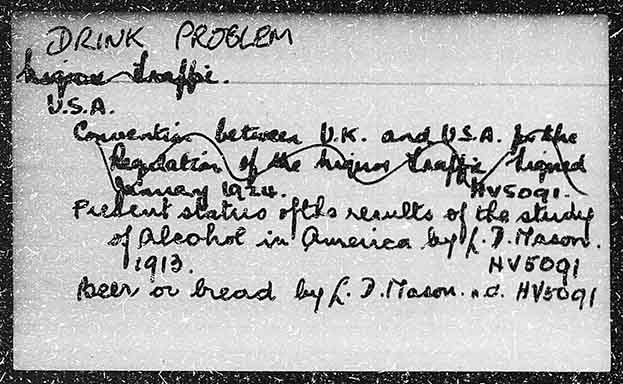 DRINK PROBLEM
Liquor traffic.
U.S.A.
Convention between U.K. and U.S.A. for the
Regulation of the liquor traffic signed
January 1924. HV5091.
Present status of the results of the study
of Alcohol in America by L. D. Mason.
1913. HV5091
Beer or bread by L. D. Mason. n.d. HV5091